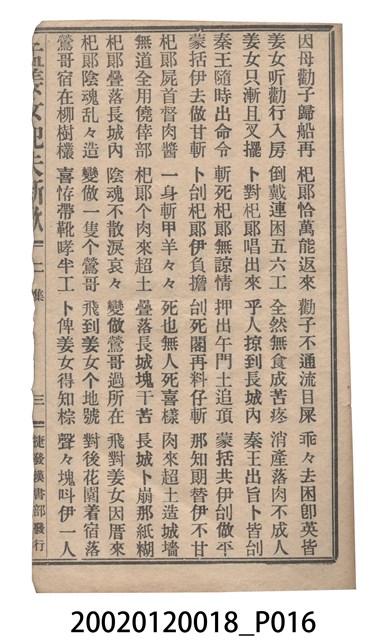 因母勸子歸船再　杞郎恰萬能返來　勸子不通流目屎　乖々去困卽英皆
姜女听勸行入房　倒戴連困五六工　全然無食成苦疼　消產落肉不成人
姜女只漸且叉擺　卜對杞郎唱出來　乎人掠到長城內　秦王出旨卜皆刣
秦王隨時出命令　斬死杞郎無諒情　押出午門土追頂　蒙括共伊刣做平
蒙括伊去做甘斬　卜刣杞郎伊負擔　刣死閣再料仔斬　那知朗替伊不甘
杞郎屍首督肉醬　一身斬甲羊々々　死也無人死喜樣　肉來超土造城墻
無道全用僥倖部　杞郎个肉來超土　疊落長城塊干苦　長城卜崩那紙糊
杞郎疊落長城內　陰魂不散淚哀々　變做鶯哥過所在　飛對姜女因厝來
杞郎陰魂乱々造　變做一隻个鶯哥　飛到姜女个地號　對後花園着宿落
鶯哥宿在柳樹欉　喜恠帶靴哮半工　卜俾姜女得知棕　聲々塊叫伊一人
孟姜女配夫新歌　二集　三　捷發漢書部發行
20020120018_P016